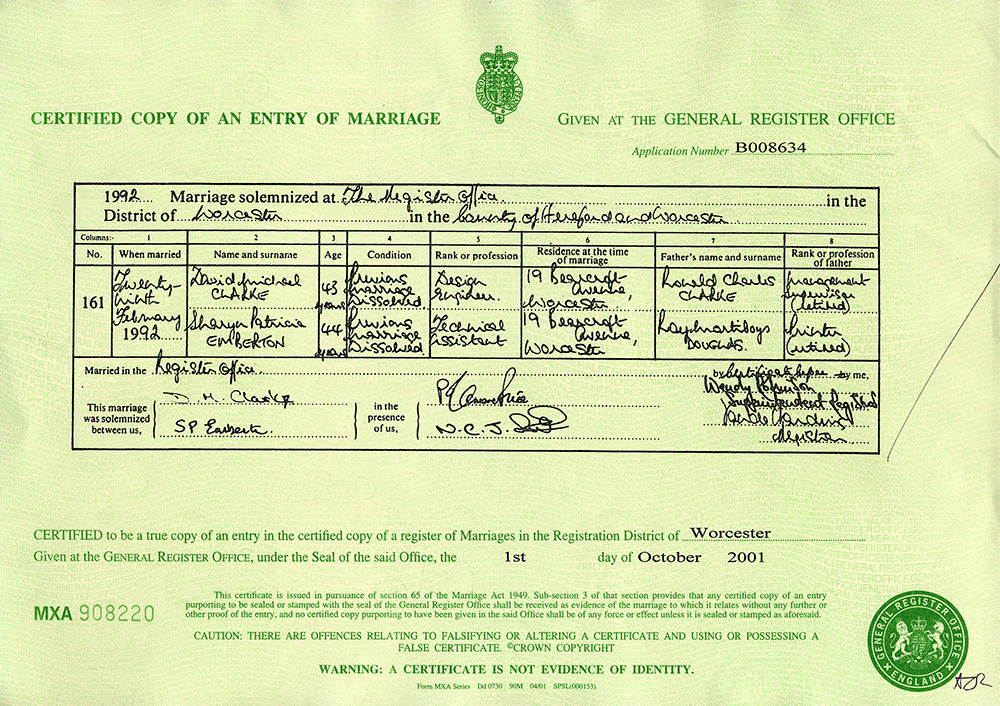 CERTIFIED COPY OF AN ENTRY OF MARRIAGE
GIVEN AT THE GENERAL REGISTER OFFICE
Application Number B008634
1992 Marriage solemnized at The Register Office in the
District of Worcester in the County of Hereford and Worcester
Columns:- 1 2 3 4 5 6 7 8
No. When married Name and surname Age Condition Rank or profession Residence at the time of marriage Father's name and surname Rank or profession of father
161
Twenty-
ninth
February
1992
David Michael
CLARKE
43
years
Previous
marriage
Dissolved
Design
Engineer
19 Bearcroft
Avenue,
Worcester
Ronald Charles
CLARKE
Management
Supervisor
(retired)
Sharyn Patricia
EMBERTON
44
years
Previous
marriage
Dissolved
Technical
assistant
19 Bearcroft
Avenue,
Worcester
DOUGLAS.
Printer
(retired)
Married in the Register Office. by me,
This marriage
was solemnized
between us,
D. M. Clarke
SP Emberton
in the
presence
of us,
N. C. J.
Wendy
Superintendent Registrar
Registrar
CERTIFIED to be a true copy of an entry in the certified copy of a register of Marriages in the Registration District of Worcester
Given at the GENERAL REGISTER OFFICE, under the Seal of the said Office, the 1st day of October 2001
MXA 908220
This certificate is issued in pursuance of section 65 of the Marriage Act 1949. Sub-section 3 of that section provides that any certified copy of an entry
purporting to be sealed or stamped with the seal of the General Register Office shall be received as evidence of the marriage to which it relates without any further or
other proof of the entry, and no certified copy purporting to have been given in the said Office shall be of any force or effect unless it is sealed or stamped as aforesaid.
CAUTION: THERE ARE OFFENCES RELATING TO FALSIFYING OR ALTERING A CERTIFICATE AND USING OR POSSESSING A
FALSE CERTIFICATE. ©CROWN COPYRIGHT
WARNING: A CERTIFICATE IS NOT EVIDENCE OF IDENTITY.
Form MXA Series Dd 0730 90M 04/01 SPSL(000153)
GENERAL REGISTER OFFICE
ENGLAND